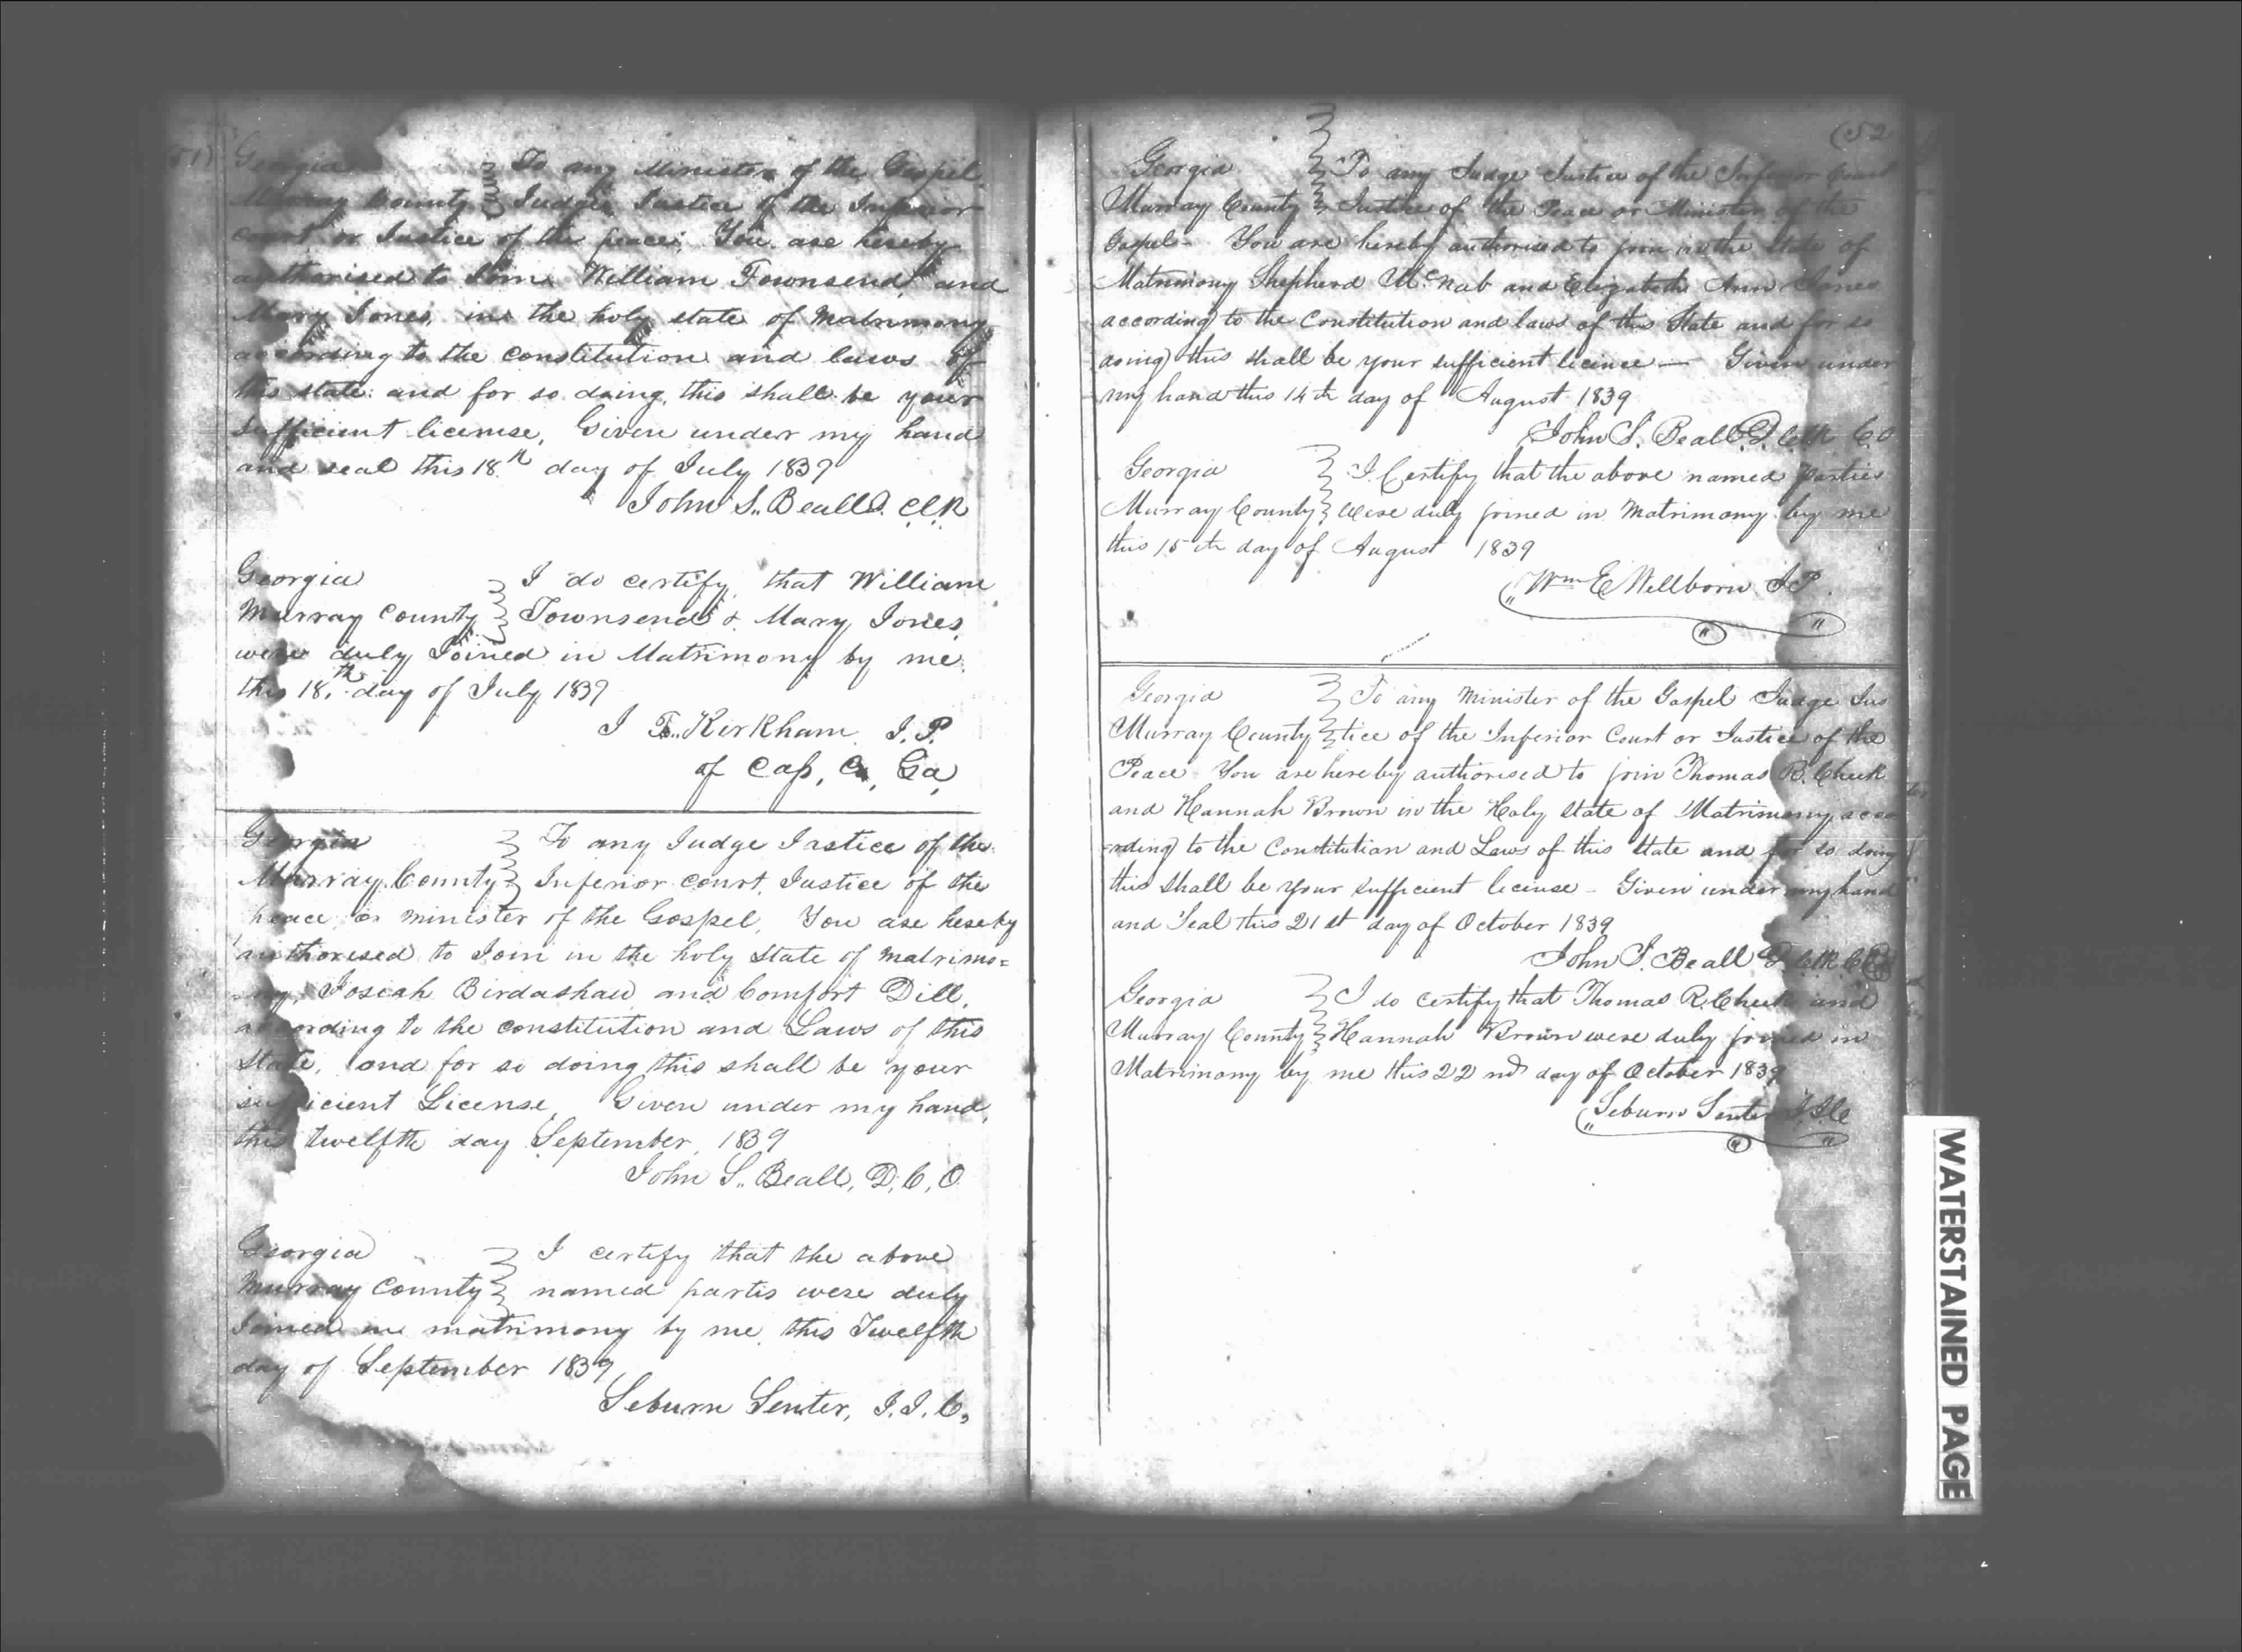 51)
Georgia
Murray County
To any Minister of the Gospel
Judge, Justice of the Inferior
court or Justice of the peace. You are hereby
authorised to Join William Townsend and
Mary Jones, in the holy state of Matrimony
according to the constitution and laws of
this state and for so doing this shall be your
sufficient license, Given under my hand
and seal this 18th day of July 1839
John S. Beall D. Clk
Georgia
Murray County
I do certify that William
Townsend & Mary Jones
were duly Joined in Matrimony by me
this 18th day of July 1839
J F. Kirkham J.P.
of Cass, Co, Ga,
Georgia
Murray County
To any Judge Justice of the
Inferior court, Justice of the
peace or minister of the Gospel, You are hereby
authorised to Join in the holy State of matrimo=
ny, Josiah Birdashaw and Comfort Dill,
according to the constitution and Laws of this
State, and for so doing this shall be your
sufficient License, Given under my hand,
this twelfth day September 1839
John S. Beall, D. C, O
Georgia
Murray County
I certify that the above
named partis were duly
Joined in matrimony by me this Twelfth
day of September 1839
Seburn Senter, J. I. C,
(52
Georgia
Murray County
To any Judge Justice of the Inferior Court
Justice of the Peace or Minister of the
Gospel - You are hereby authorised to join in the State of
Matrimony Shepherd McNab and Elizabeth Ann Jones
according to the Constitution and laws of this State and for so
doing this shall be your sufficient licince — Given under
my hand this 14th day of August 1839
John S. Beall D. Clk C.O
Georgia
Murray County
I Certify that the above named parties
were duly joined in Matrimony by me
this 15th day of August 1839
Wm E Wellborn J.P.
Georgia
Murray County
To any Minister of the Gospel Judge Jus
tice of the Inferior Court or Justice of the
Peace You are hereby authorised to join Thomas R. Cheek
and Hannah Brown in the Holy State of Matrimony acco
-rding to the Constitution and Laws of this State and for so doing
this shall be your sufficient license - Given under my hand
and Seal this 21st day of October 1839
John S. Beall D Clk C
Georgia
Murray County
I do certify that Thomas R. Cheek and
Hannah Brown were duly joined in
Matrimony by me this 22nd day of October 1839
Seburn Senter J.I.C
WATERSTAINED PAGE